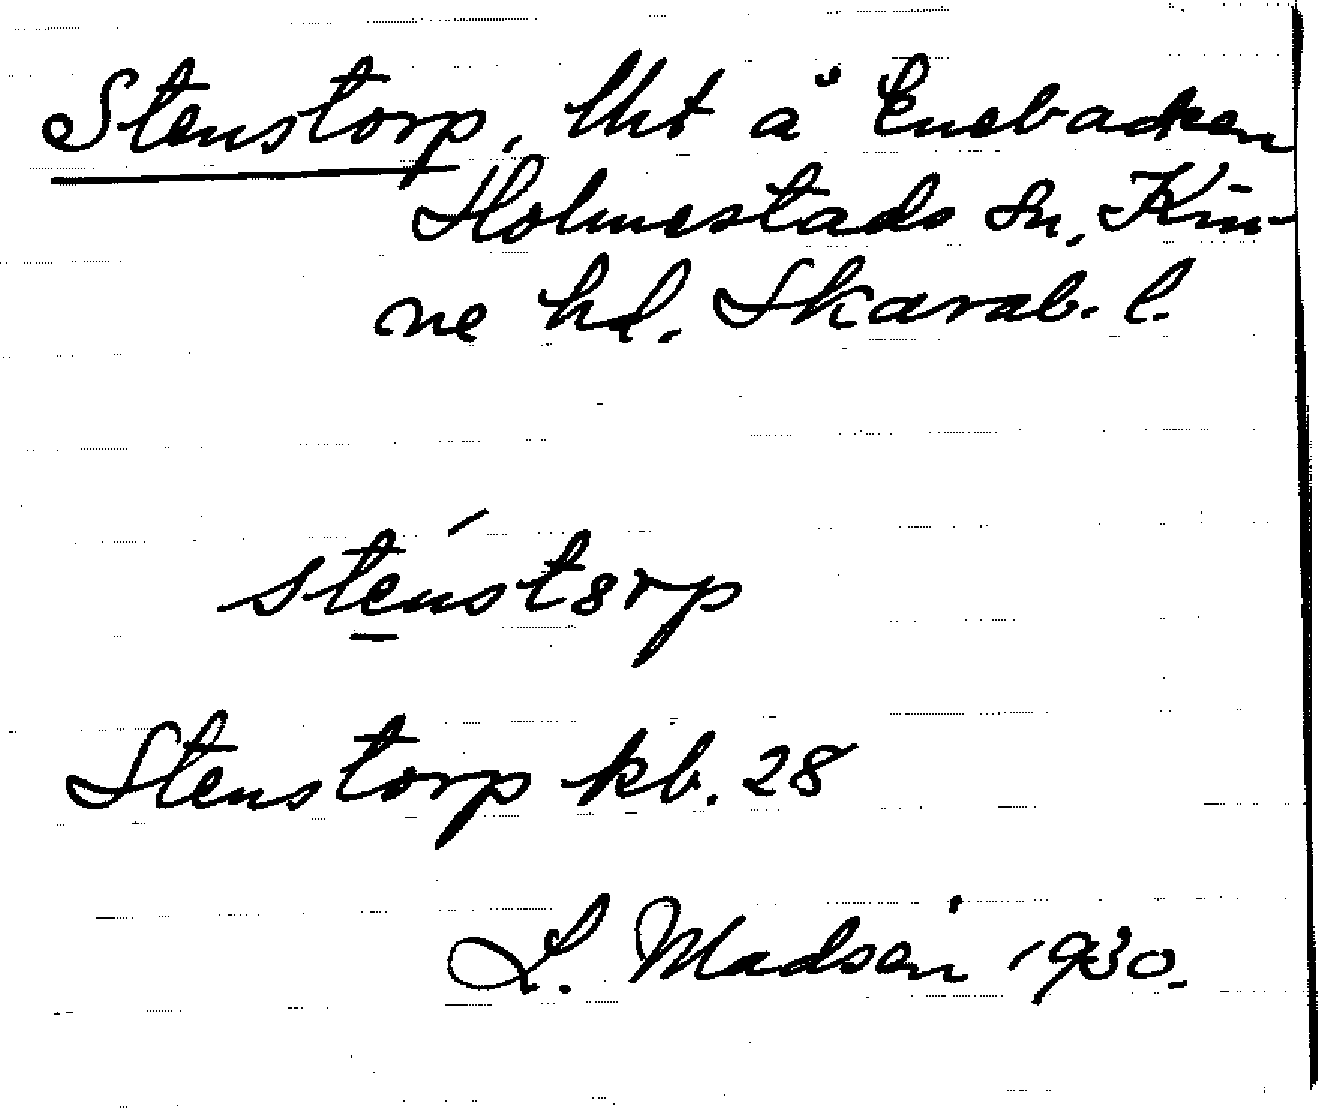 Stenstorp, lht å Enebacken
Holmestads sn, Kin-
ne hd. Skarab. l.
sténstorp
Stenstorp kb. 28
L. Madsén 1930.